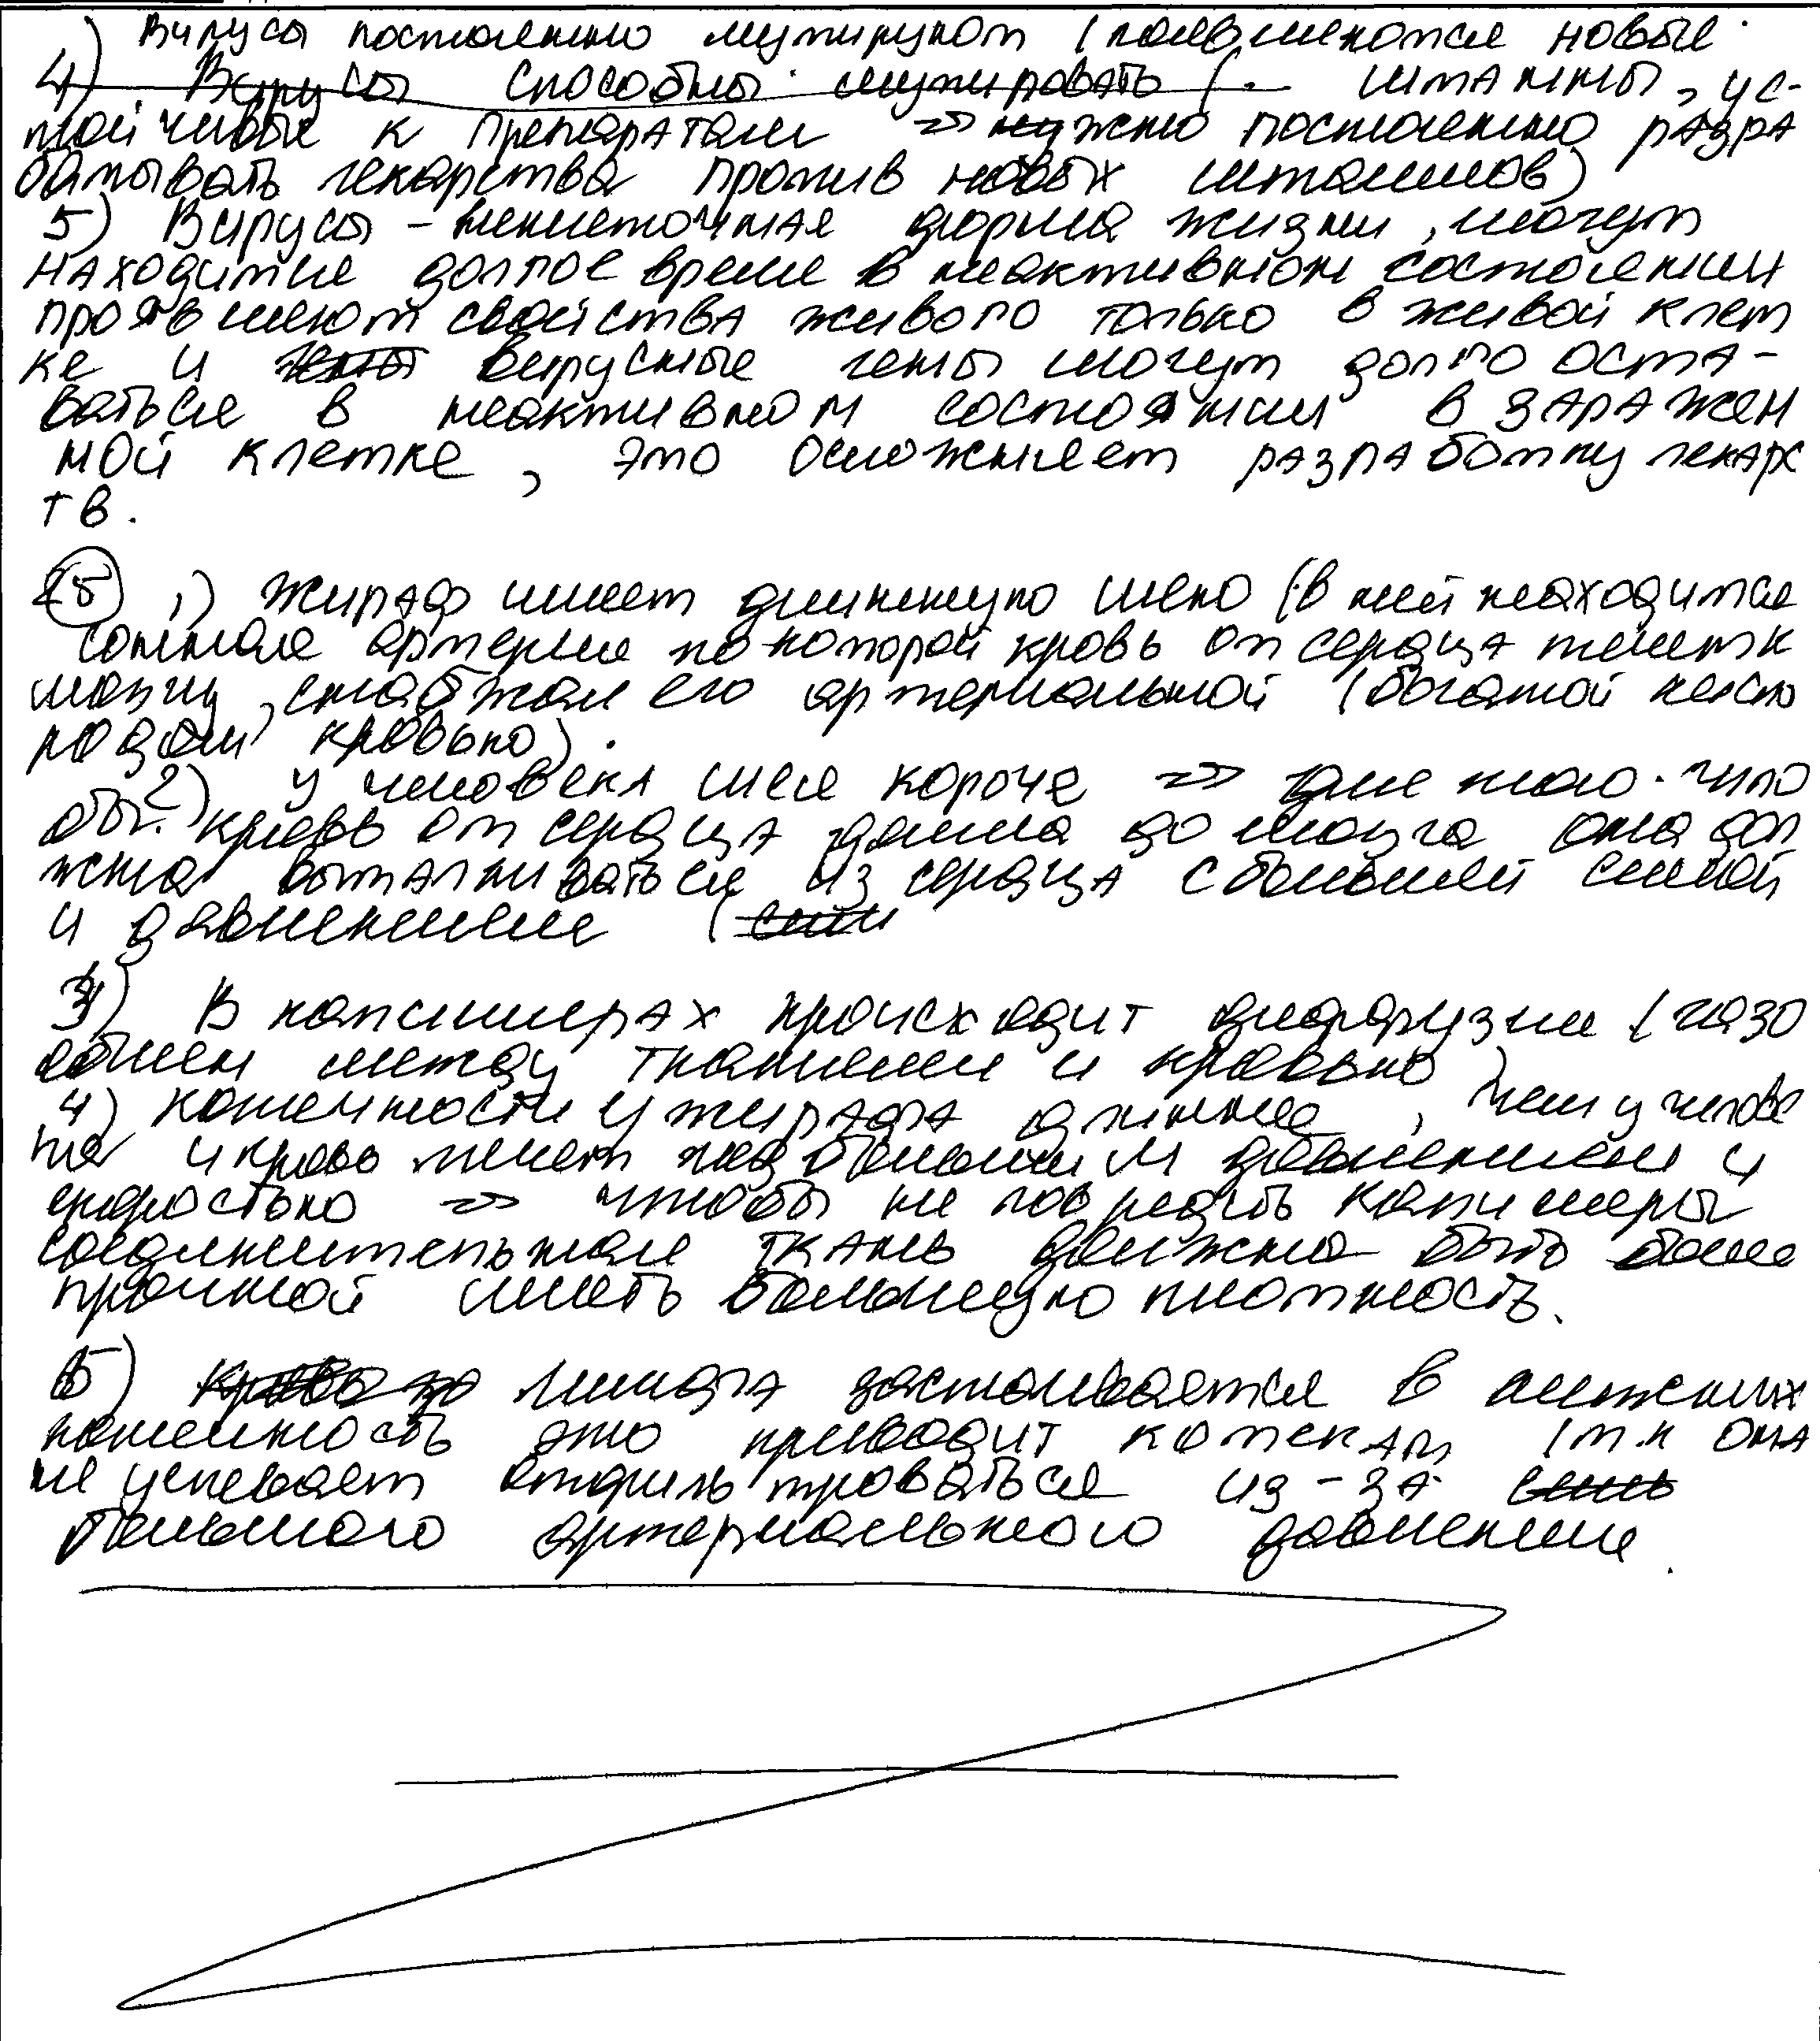 Вирусы постоянно мутируют (появляются новые
4) Вирусы способны мутировать (. штаммы, ус-
тойчивые к препаратам => нужно постоянно разра
батывать лекарства против новых штаммов)
5) Вирусы - неклеточная форма жизни, могут
находится долгое время в неактивном состоянии
проявляют свойства живого только в живой клет
ке и гены вирусные гены могут долго оста-
ваться в неактивном состоянии в заражен
ной клетке, это осложняет разработку лекарс
тв.
25) 1) Жираф имеет длинную шею (в ней находится
сонная артерия по которой кровь от сердца течет к
мозгу, снабжая его артериальной (богатой кисло
родом кровью).
2) У человека шея короче => для того что
бы кровь от сердца дошла до мозга она дол
жна выталкиваться из сердца с большей силой
и давлением (
3) В капиллярах происходит диффузия (газо
обмен между тканями и кровью)
4) конечности у жирафа длиннее, чем у челове
ка и кровь течет под большим давлением и
скоростью => чтобы не повредить капилляры
соединительная ткань должна быть более
прочной иметь большую плотность.
5) Кровь за лимфа застаивается в нижних
конечность это приводит к отекам (т.к она
не успевает отфильтроваться из-за
большого артериального давления.